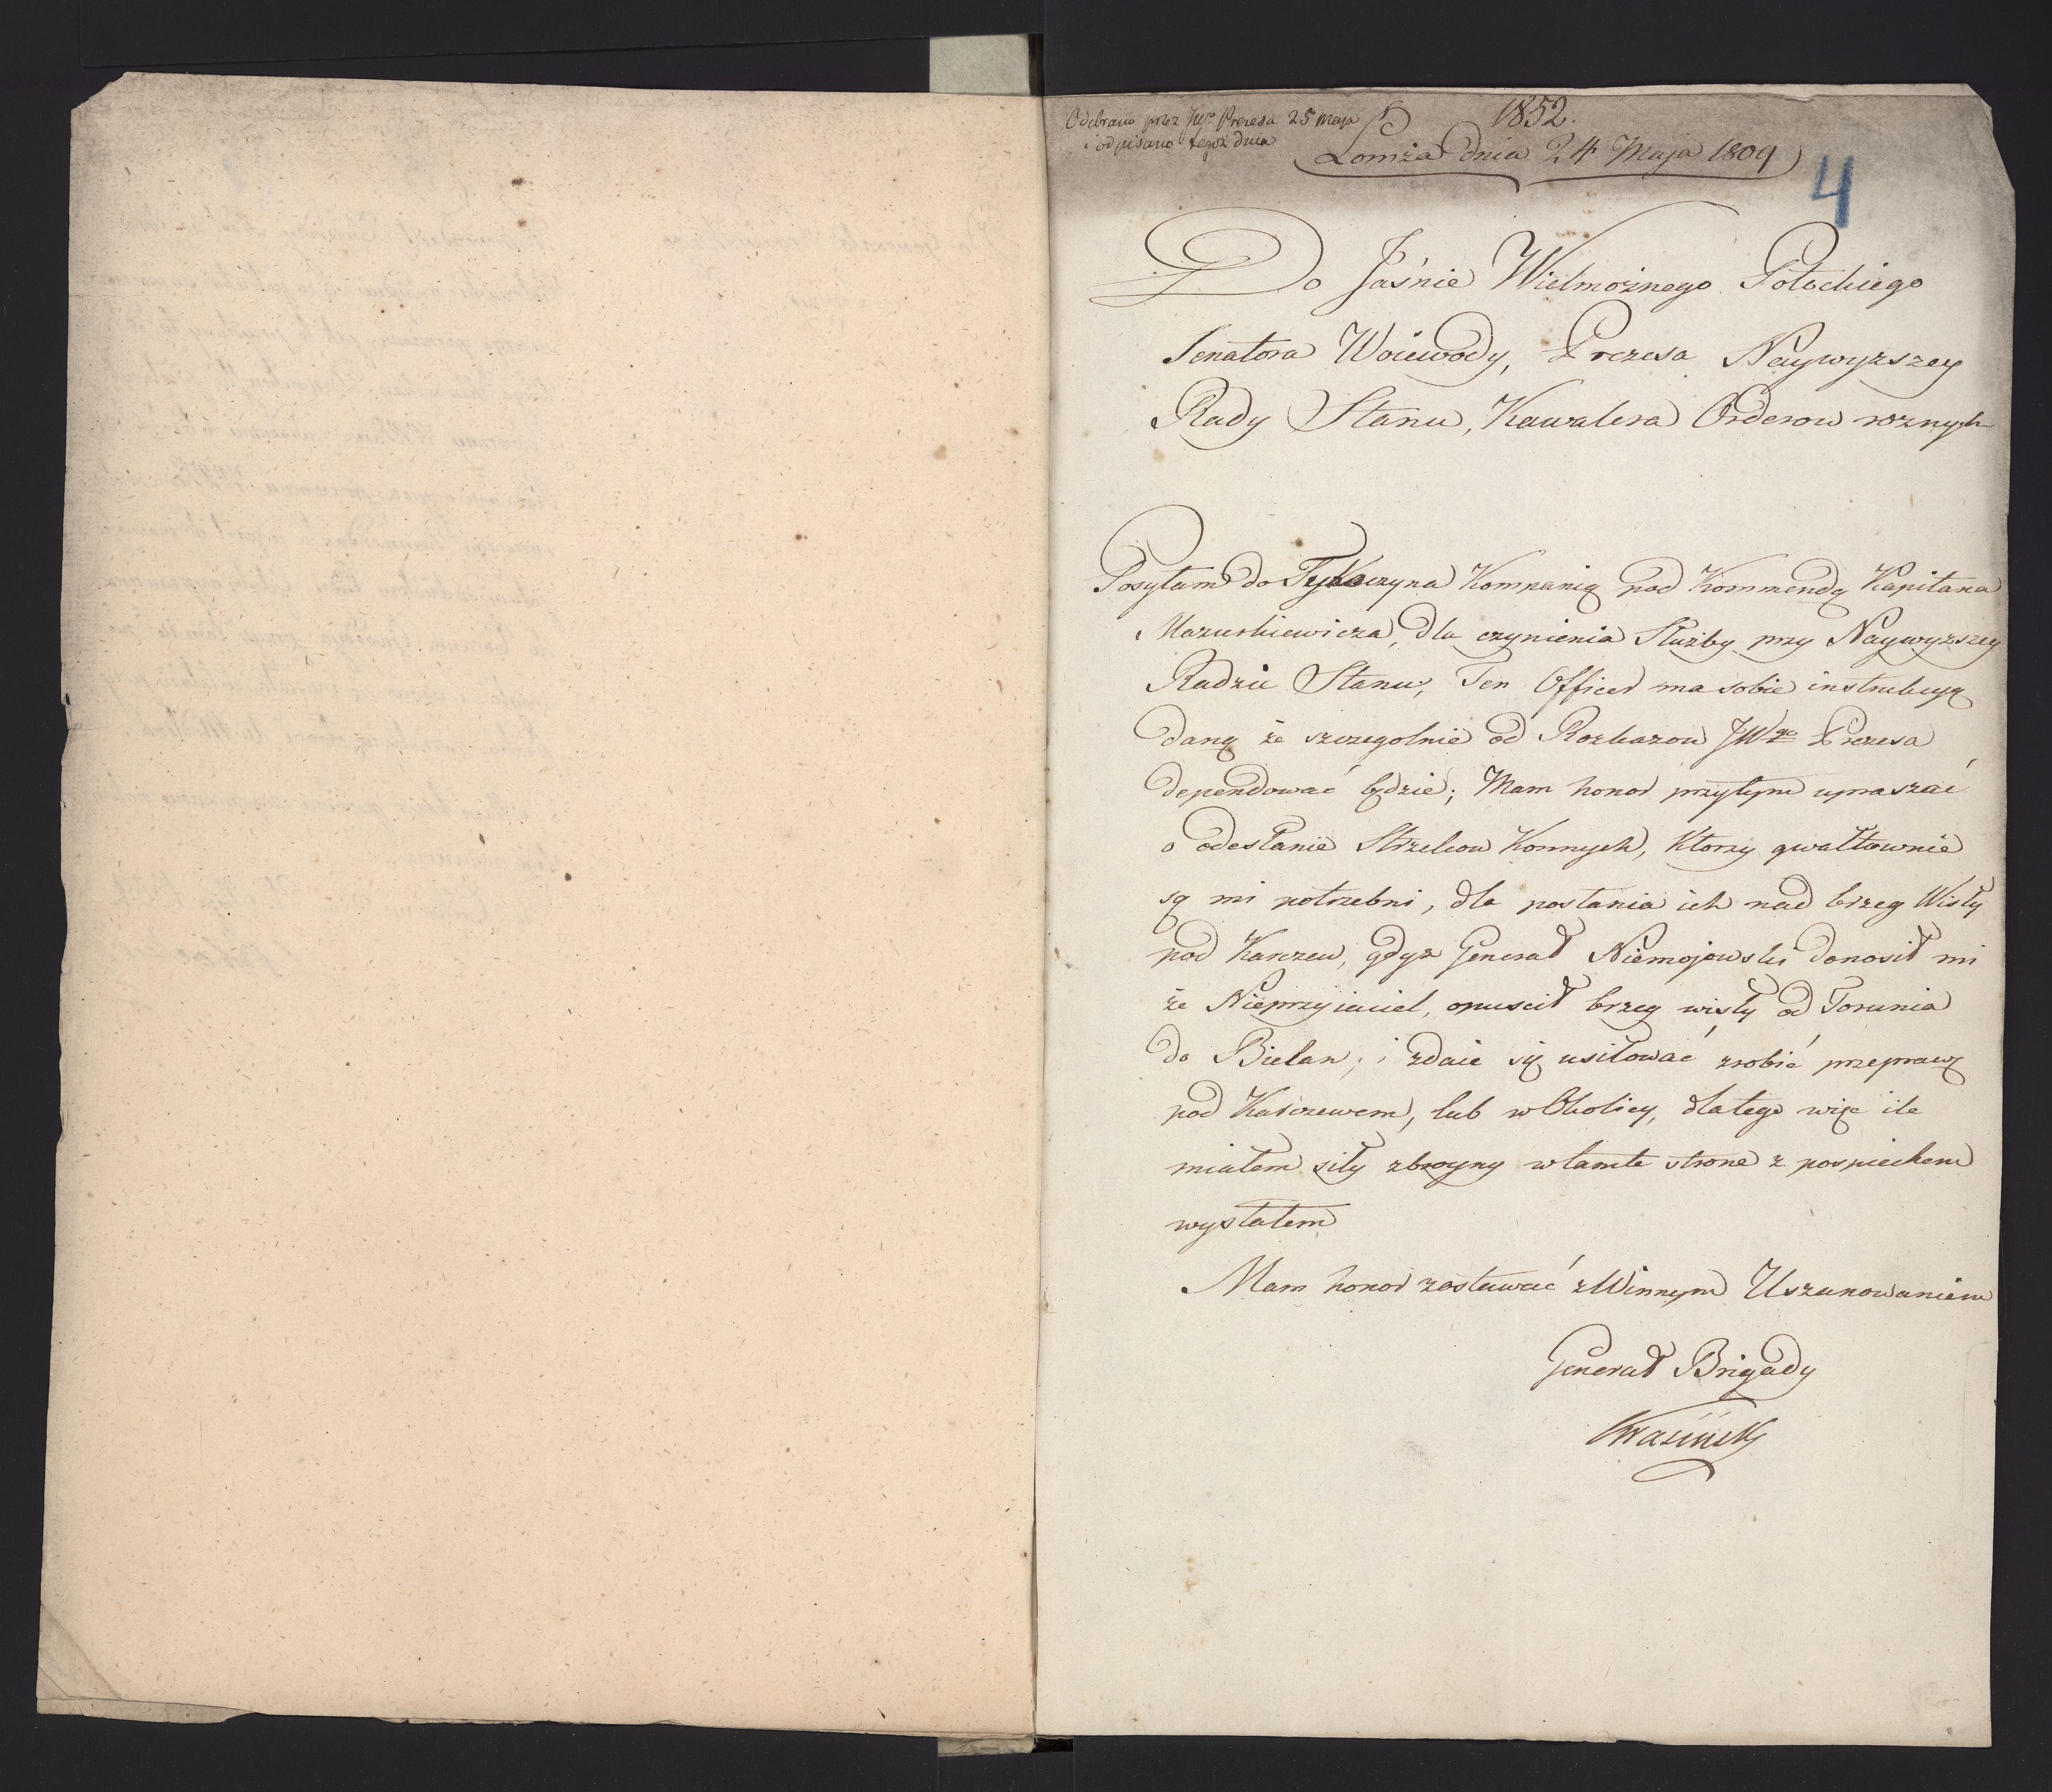 Odebrano przez JWo Prezesa 25 Maja
i odpisano tegoż dnia
1852.
Łomża dnia 24 Maja 1809
4
Do Jaśnie Wielmożnego Potockiego
Senatora Woiewody, Prezesa Naywyzszey
Rady Stanu, Kawalera Orderow roznych
Posyłam do Tykoczyna Kompanią pod Kommendą Kapitana
Mazurkiewicza, dla czynienia Służby przy Naywyzszey
Radzie Stanu, Ten Officer ma sobie instrukcyą
daną że szczegolnie od Rozkazow JWgo Prezesa
dependować będzie; Mam honor przytym upraszać
o odesłanie Strzelcow Konnych, Ktorzy gwałtownie
są mi potrzebni, dla posłania ich nad brzeg Wisły
pod Karczew, gdyz Generał Niemojewski donosił mi
że Nieprzyiaciel, opuscił brzeg wisły od Torunia
do Bielan, i zdaie się usiłować zrobić przeprawę
pod Karczewem, lub w Okolicy, dlatego więc ile
miałem siły zbroyny w tamte strone z pospiechem
wysłałem
Mam honor zostawać z Winnym Uszanowaniem
Generał Brigady
Krasiński